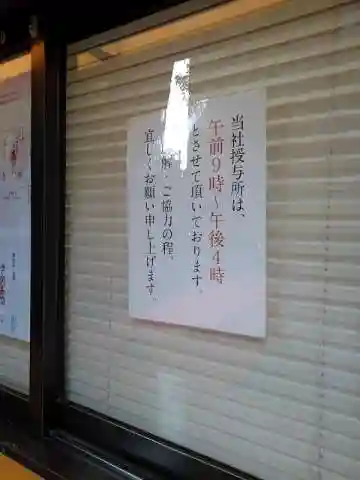 当社授与所は、
午前９時～午後４時
とさせて頂いております。
解・ご協力の程、
宜しくお願い申し上げます。